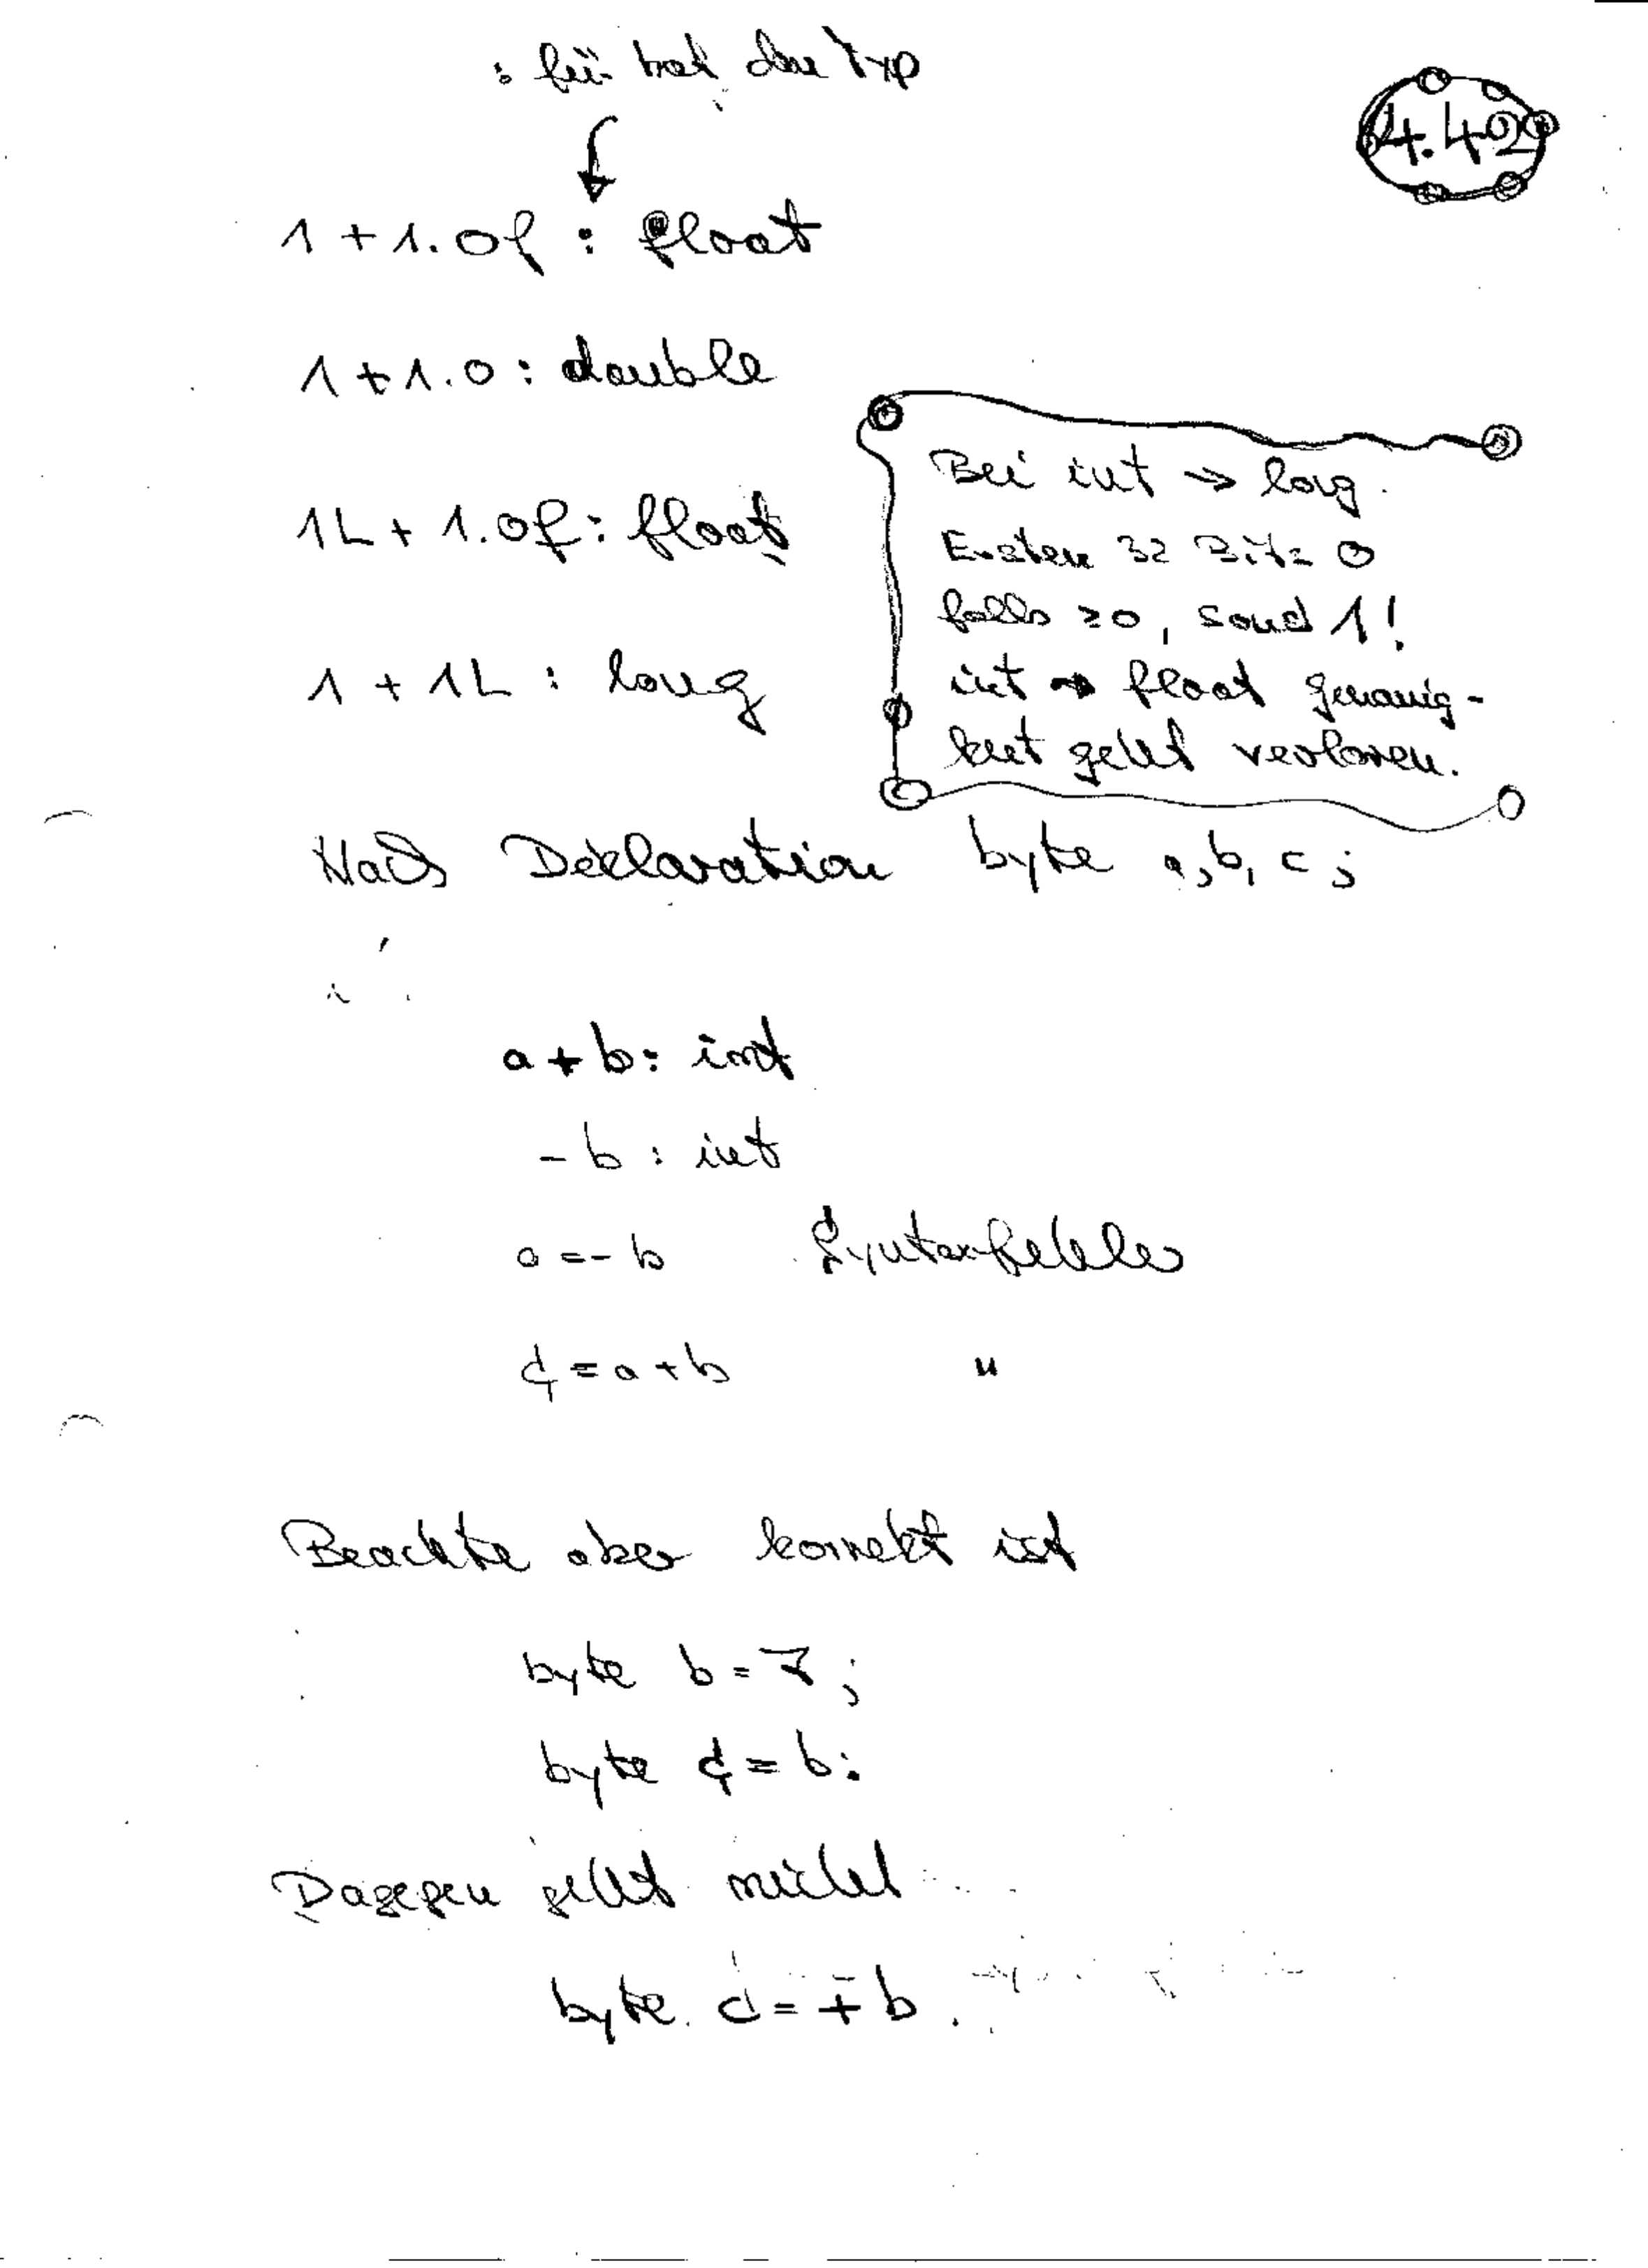 : für hat den Typ
4.42
1 + 1.0f : float
1 + 1.0 : double
1L + 1.0f : float
1 + 1L : long
Bei int → long.
Ersten 32 Bits 0
falls ≥0, sonst 1!
int → float genauig-
keit geht verloren.
Nach Deklaration byte a, b, c ;
a + b : int
- b : int
a = - b Syntaxfehler
c = a + b "
Beachte aber korrekt ist
byte b = 7 ;
byte c = b ;
Dagegen geht nicht
byte c = + b .